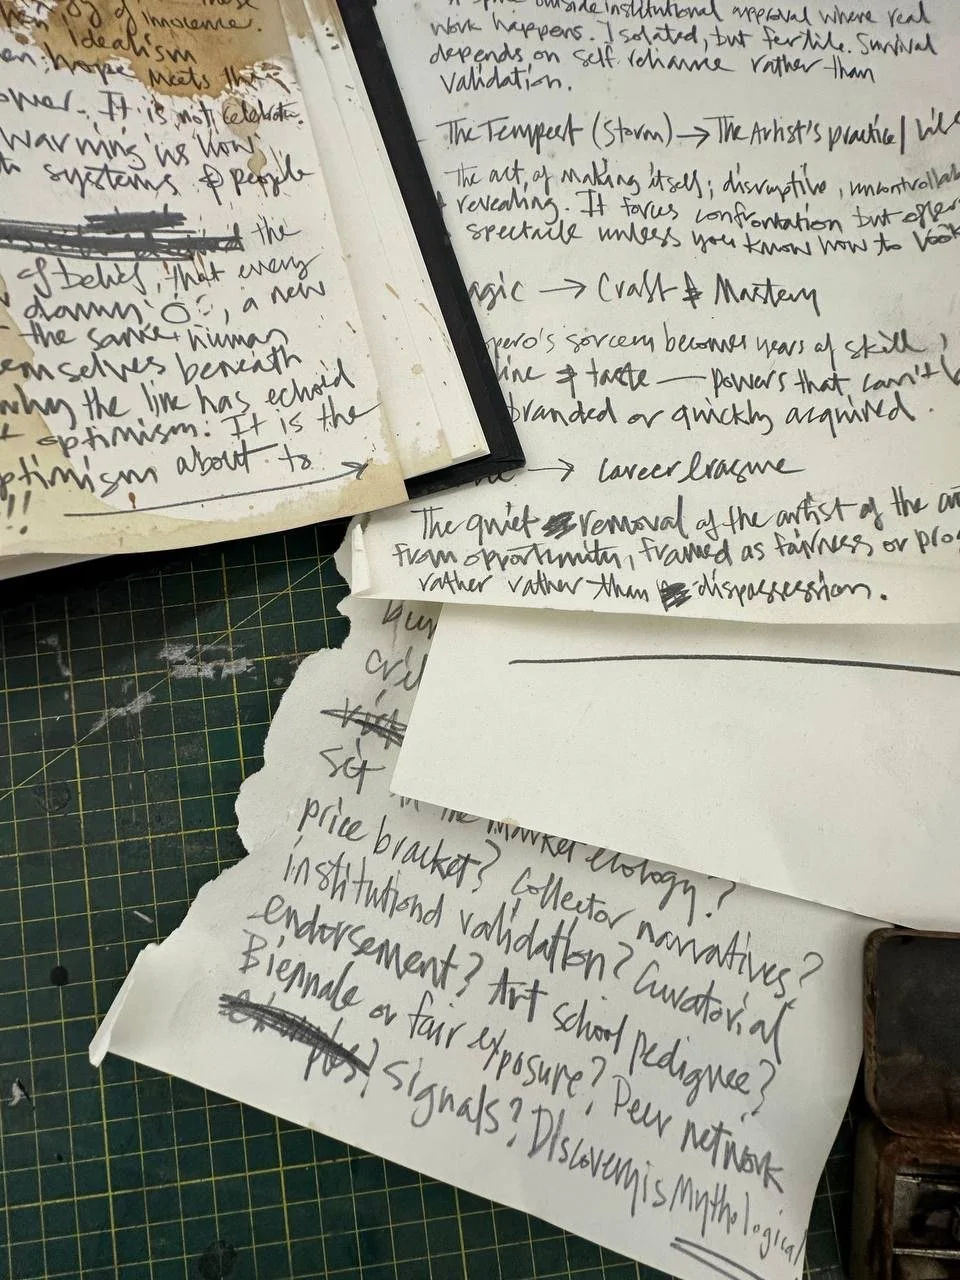 these
of innocence.
Idealism
hope meets the
power. It is not celebrate.
warning us how
systems & people
the
of belief, that every
damn! a new
the same human
themselves beneath
why the line has echoed
optimism. It is the
optimism about to
!!
outside institutional approval where real
work happens. Isolated, but fertile. Survival
depends on self reliance rather than
validation.
The Tempest (Storm) → The Artist's practice/
The act, of making itself; disruptive, uncontrollab
revealing. It forces confrontation but offer
spectacle unless you know how to look
agic → Craft & Mastery
pero's sorcery becomes years of skill,
line & taste — powers that can't b
branded or quickly acquired.
→ Career Erasure
The quiet removal of the artist of the
from opportunity, framed as fairness or pro
rather rather than dispossession.
cri
sit
in the market ecology?
price bracket? Collector narratives?
institutional validation? Curatorial
endorsement? Art school pedigree?
Biennale or fair exposure? Peer network
signals? Discovery is Mythological